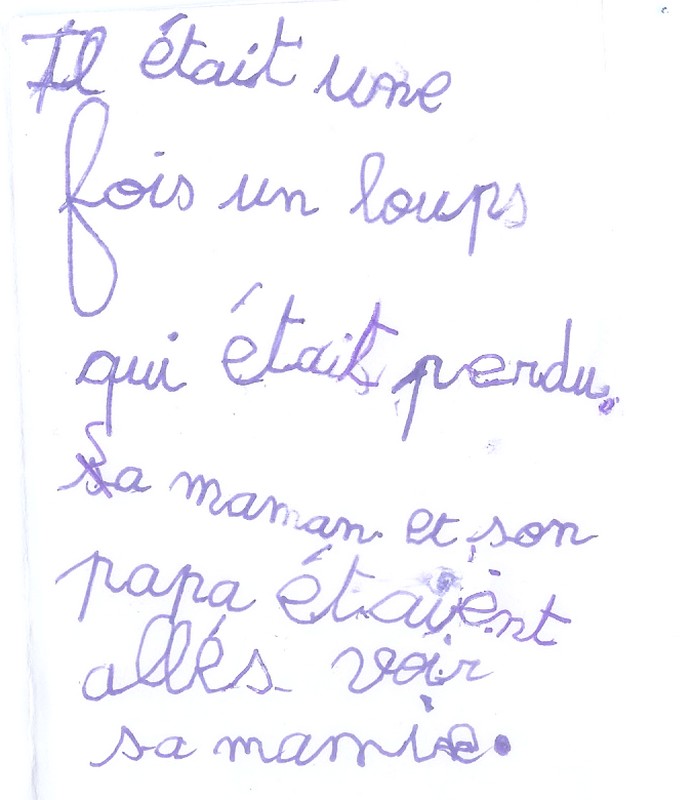 Il était une
fois un loups
qui était perdu.
Sa maman et son
papa étaient
allés voir
sa mamie.